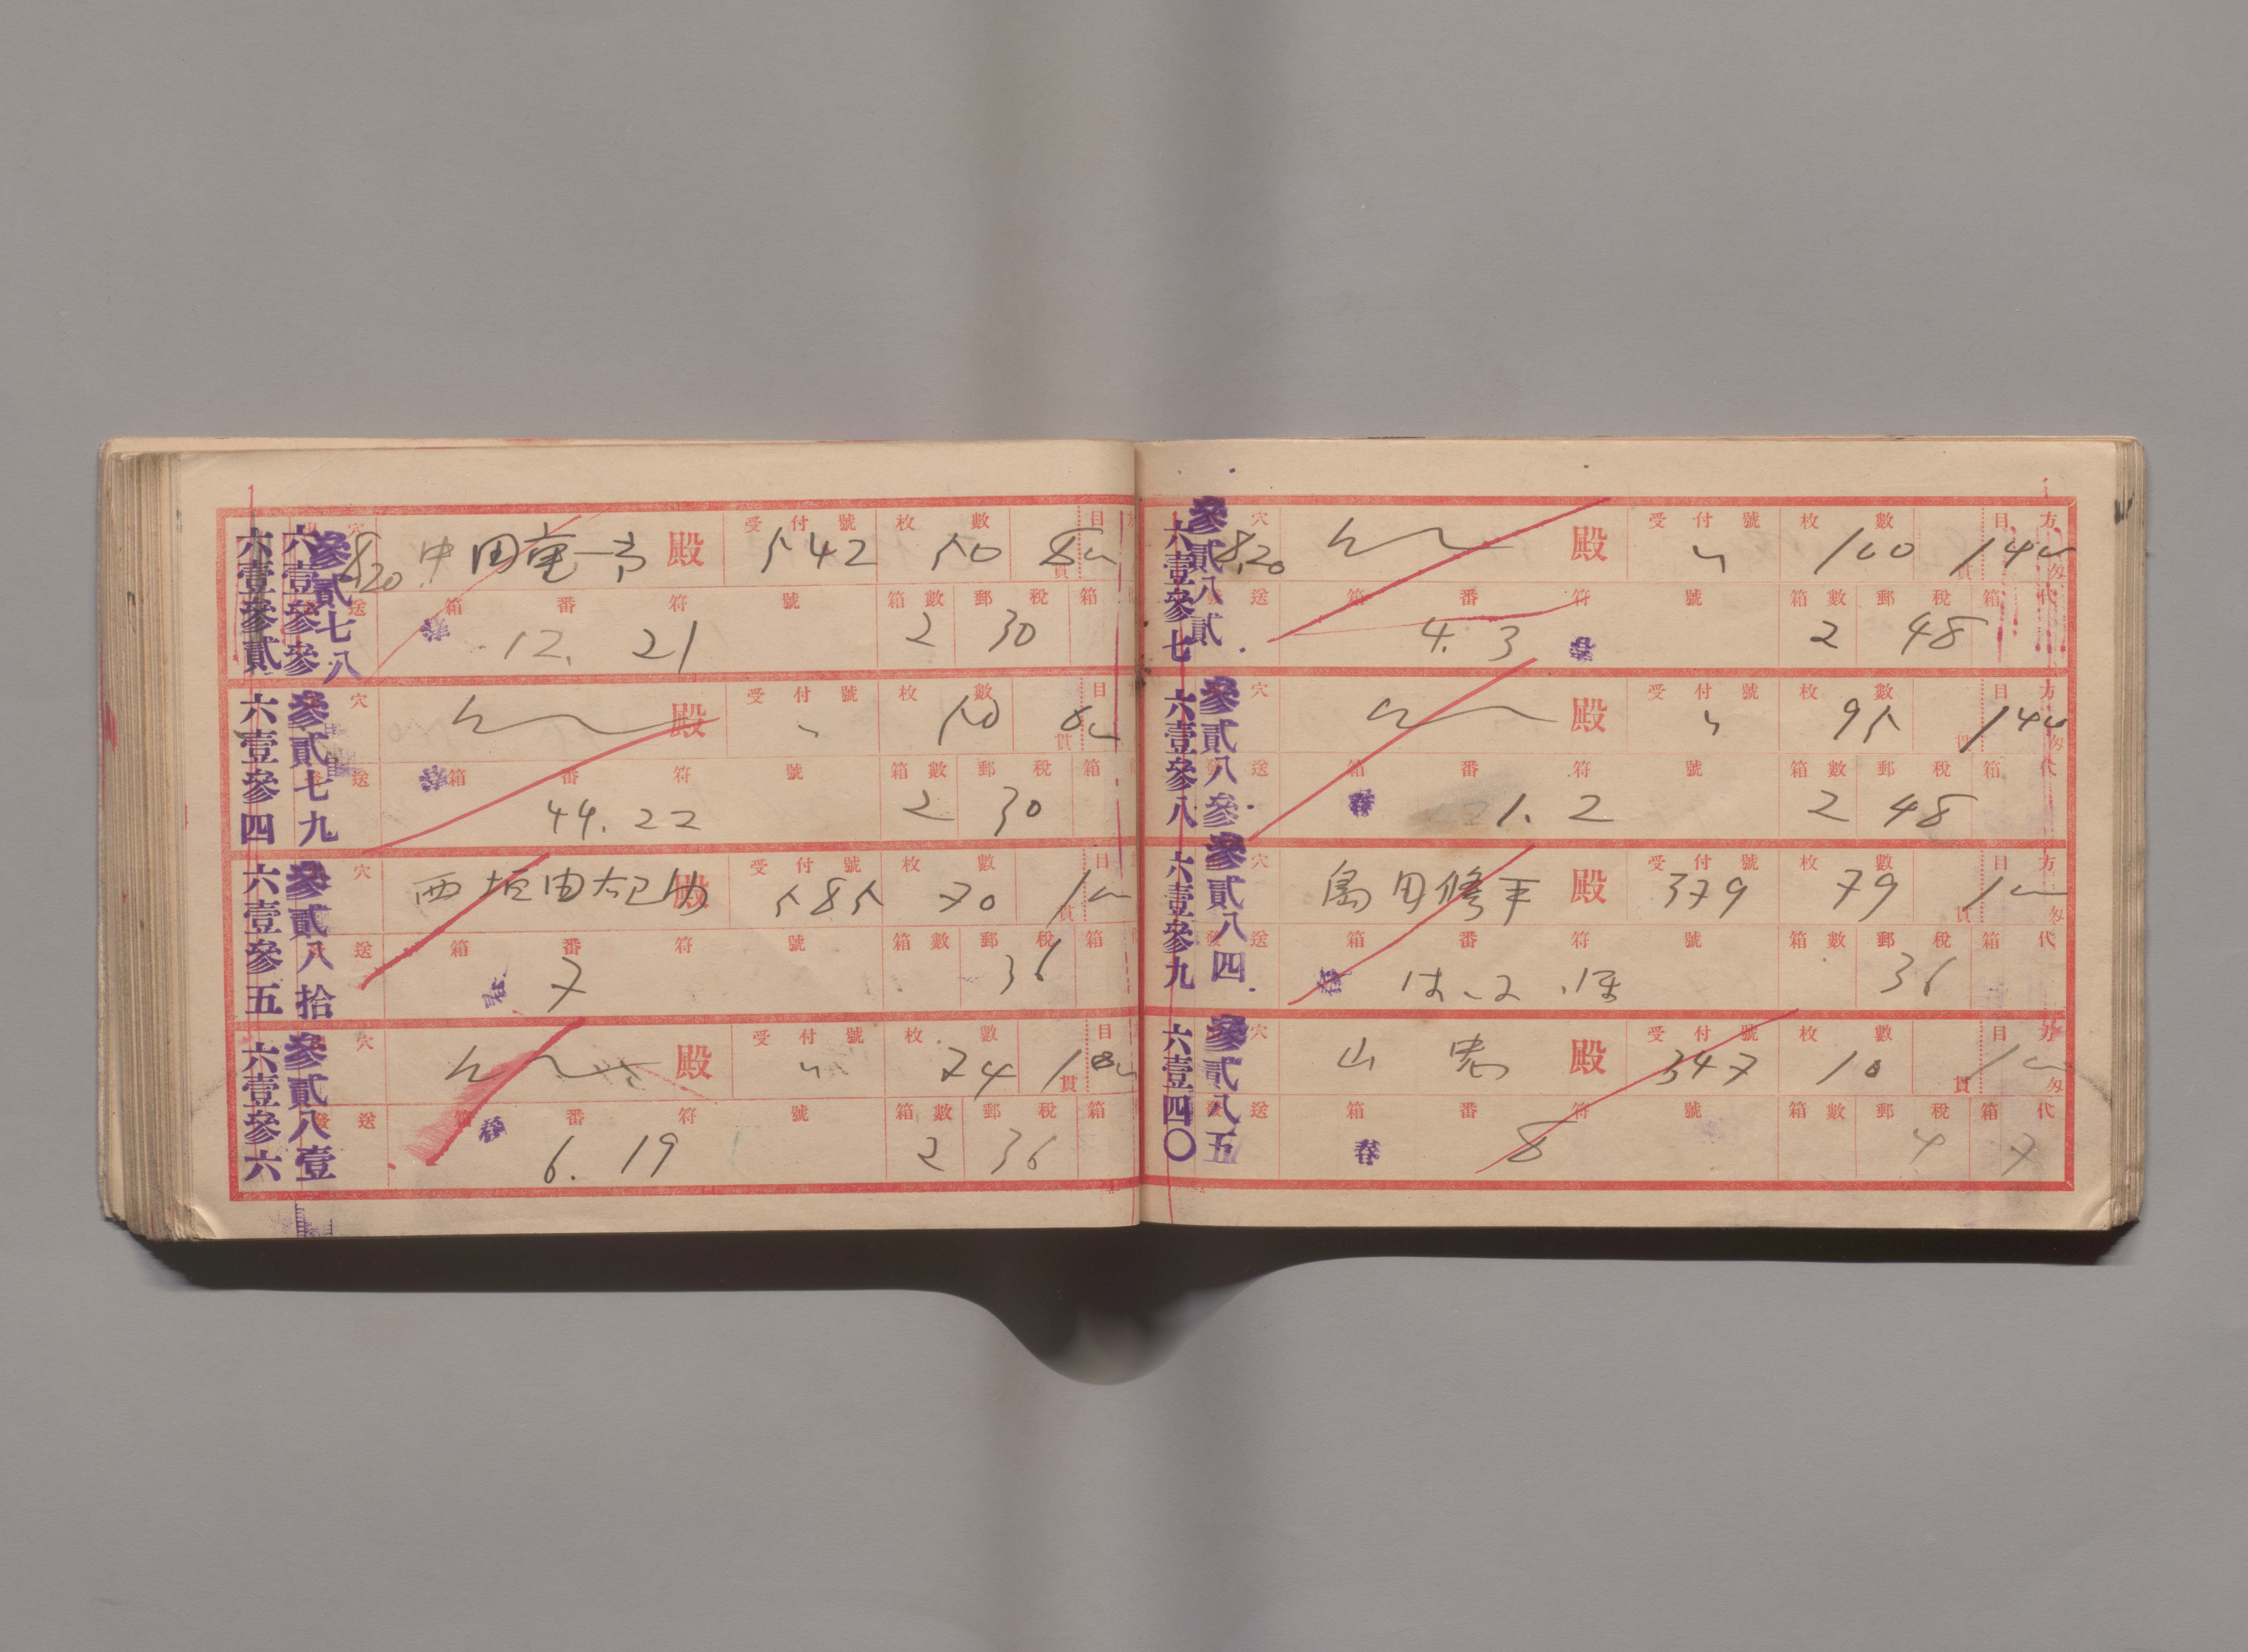 六壹參貳 六壹參參 參貳七八
8.20 中田 殿 受付號 542 枚數 50 貫目 80
送 箱番符號 12. 21 箱數 2 郵稅 30 箱
六壹參四 參貳七九
穴 殿 受付號 〃 枚數 50 貫目 80
送 箱番符號 44. 22 箱數 2 郵稅 30 箱
六壹參五 參貳八拾
穴 西垣由 殿 受付號 585 枚數 70 貫目 1
送 箱番符號 7 箱數 郵稅 36 箱
六壹參六 參貳八壹
穴 殿 受付號 〃 枚數 74 貫目 1
發送 箱番符號 6. 19 箱數 2 郵稅 36 箱
六壹參七 參貳八貳
8.20 穴 殿 受付號 〃 枚數 100 貫目方匁 14
發送 箱番符號 4. 3 春 箱數 2 郵稅 48 箱代
六壹參八 參貳八參
穴 殿 受付號 〃 枚數 95 貫目方匁 14
發送 箱番符號 21. 2 春 箱數 2 郵稅 48 箱代
六壹參九 參貳八四
穴 島田修平 殿 受付號 379 枚數 79 貫目方匁 1
發送 箱番符號 春 箱數 郵稅 36 箱代
六壹四〇 參貳八五
穴 山 殿 受付號 347 枚數 10 貫目方匁 1
發送 箱番符號 8 春 箱數 郵稅 4 箱代 7